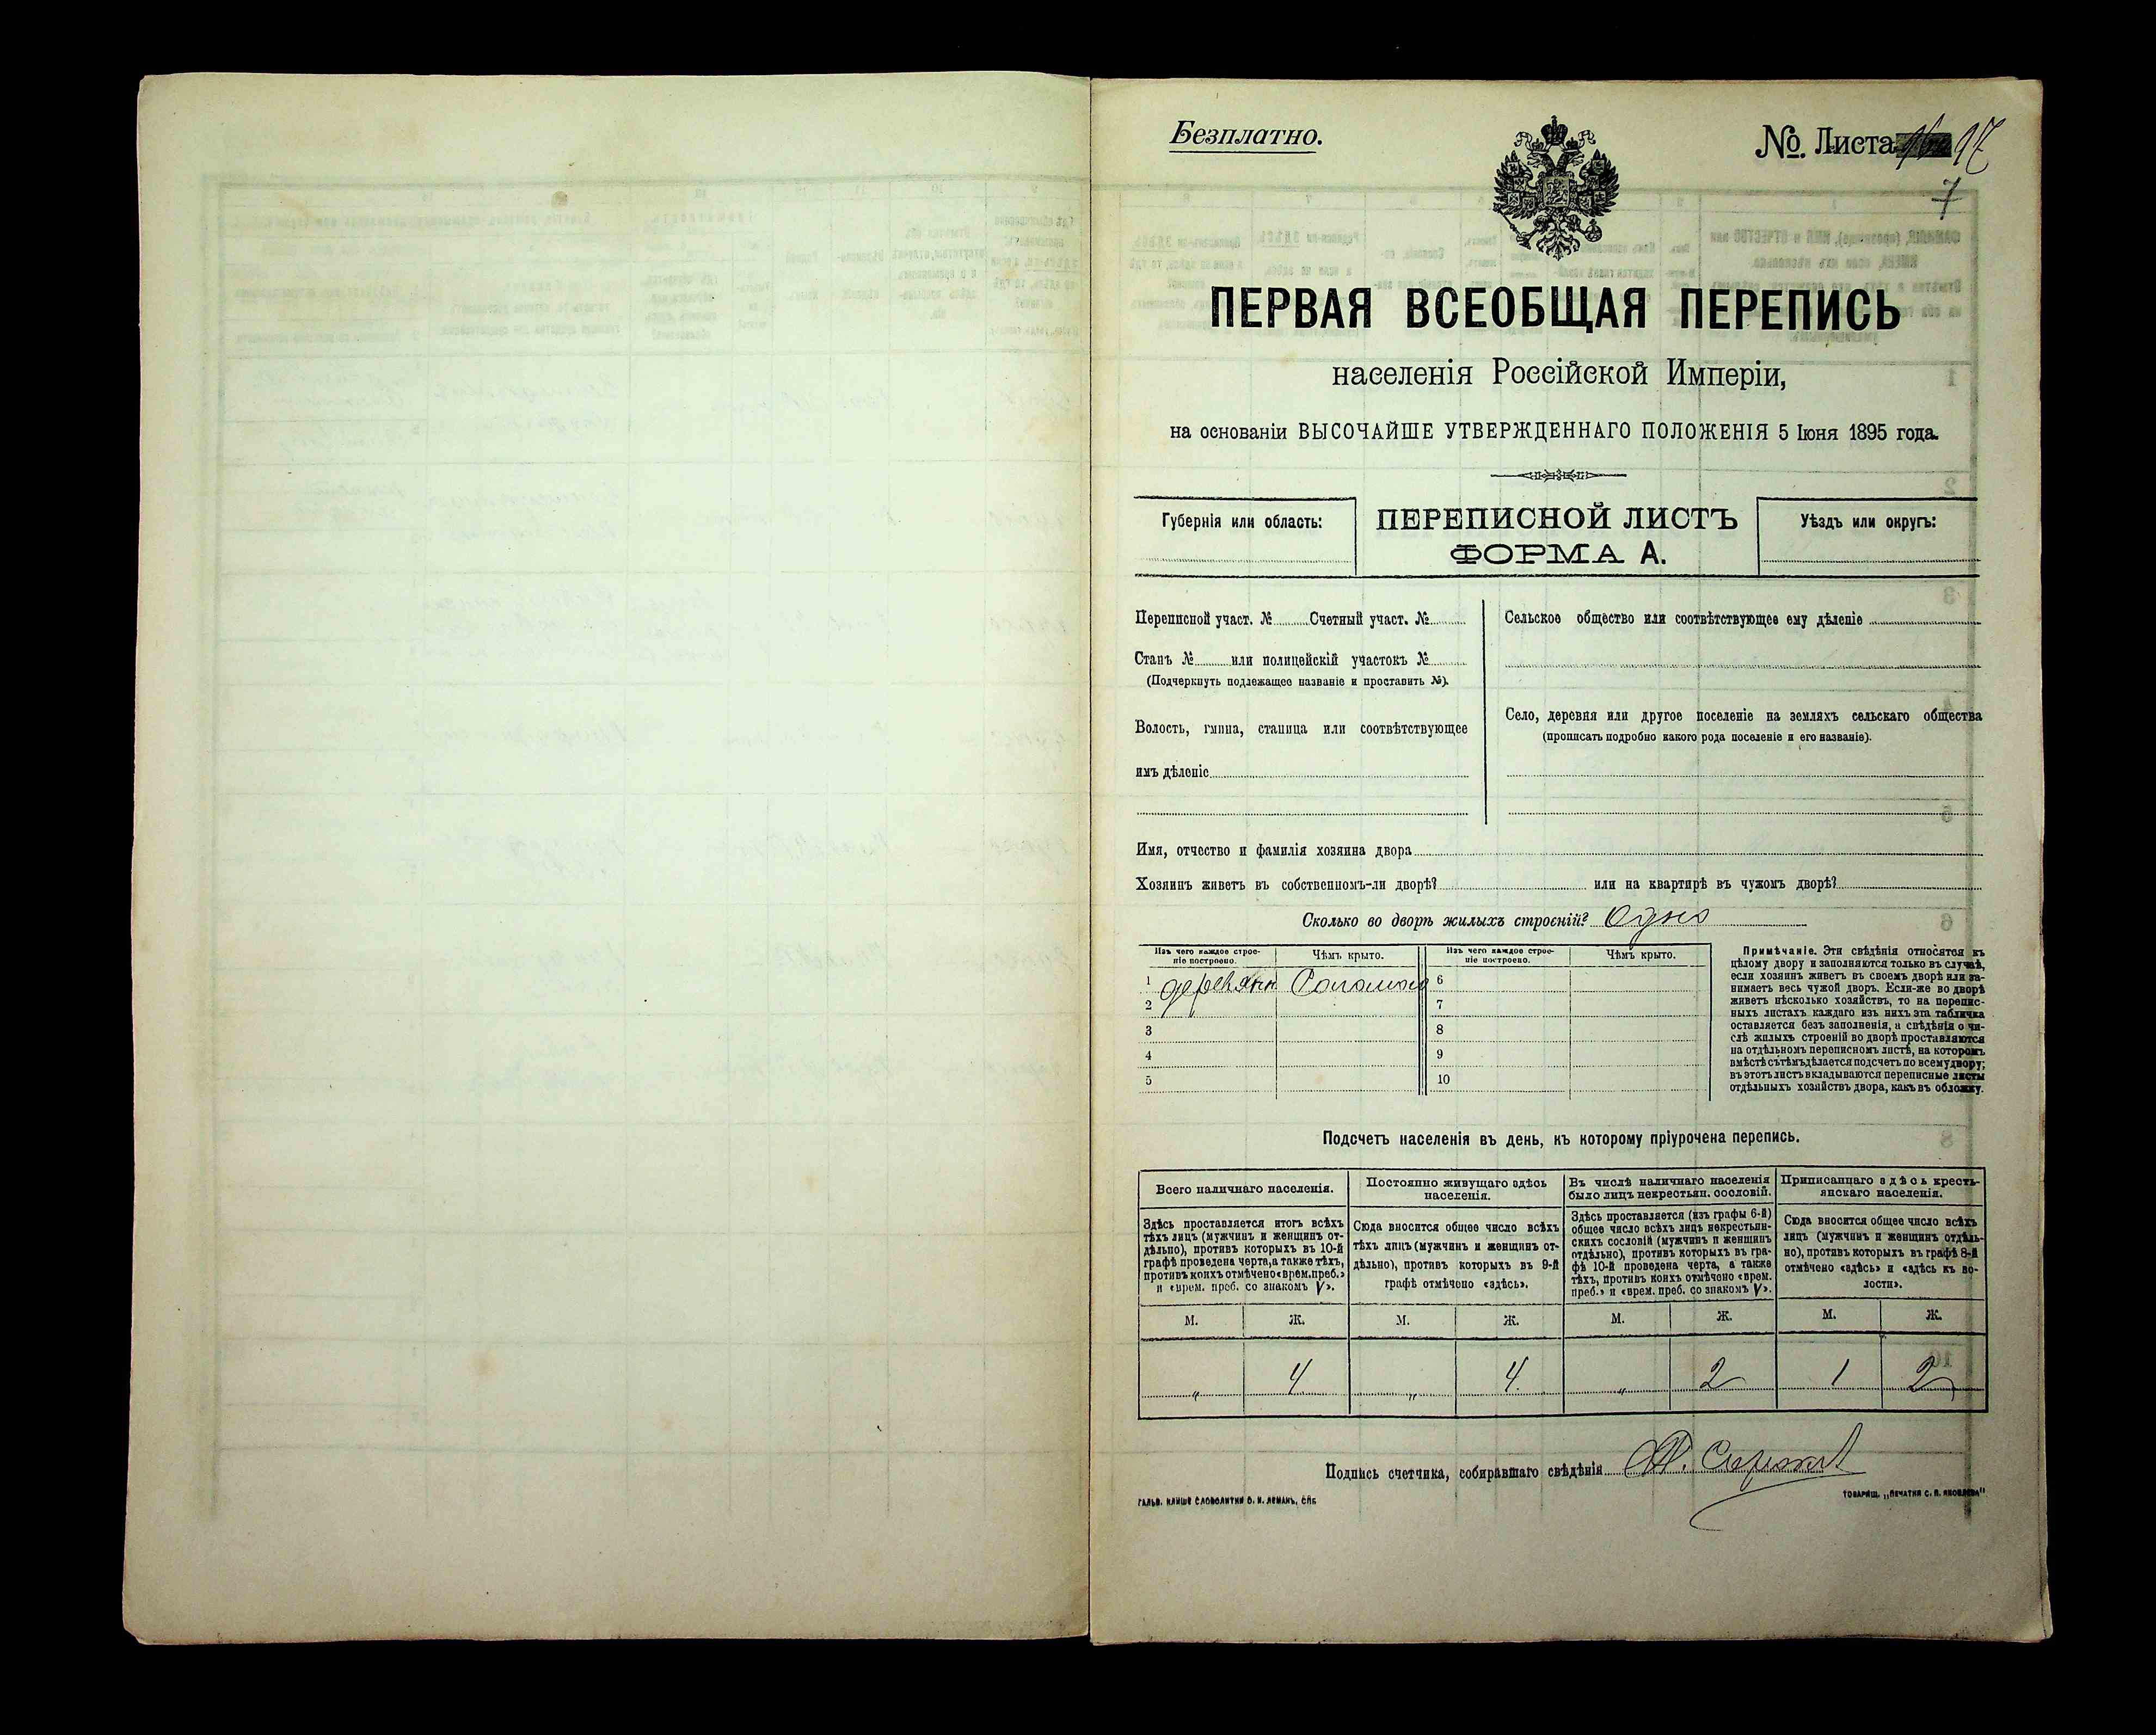 Безплатно.
No. Листа 97
7
ПЕРВАЯ ВСЕОБЩАЯ ПЕРЕПИСЬ
населенія Россійской Имперіи,
на основаніи ВЫСОЧАЙШЕ УТВЕРЖДЕННАГО ПОЛОЖЕНІЯ 5 Іюня 1895 года.
Губернія или область:
ПЕРЕПИСНОЙ ЛИСТЪ
ФОРМА А.
Уѣздъ или округъ:
Переписной участ. № Счетный участ. №
Станъ № или полицейскій участокъ №
(Подчеркнуть подлежащее названіе и проставить №).
Волость, гмина, станица или соотвѣтствующее
имъ дѣленіе
Сельское общество или соотвѣтствующее ему дѣленіе
Село, деревня или другое поселеніе на земляхъ сельскаго общества
(прописать подробно какого рода поселеніе и его названіе).
Имя, отчество и фамилія хозяина двора
Хозяинъ живетъ въ собственномъ-ли дворѣ? или на квартирѣ въ чужомъ дворѣ?
Сколько во дворѣ жилыхъ строеній? Одно
Изъ чего каждое строе-
ніе построено.
Чѣмъ крыто.
Изъ чего каждое строе-
ніе построено.
Чѣмъ крыто.
1 деревянн Соломой 6
2 7
3 8
4 9
5 10
Примѣчаніе. Эти свѣдѣнія относятся къ
цѣлому двору и заполняются только въ случаѣ,
если хозяинъ живетъ въ своемъ дворѣ или за-
нимаетъ весь чужой дворъ. Если-же во дворѣ
живетъ нѣсколько хозяйствъ, то на перепис-
ныхъ листахъ каждаго изъ нихъ эта табличка
оставляется безъ заполненія, а свѣдѣнія о чи-
слѣ жилыхъ строеній во дворѣ проставляются
на отдѣльномъ переписномъ листѣ, на которомъ
вмѣстѣ съ тѣмъ дѣлается подсчетъ по всему двору;
въ этотъ листъ вкладываются переписные листы
отдѣльныхъ хозяйствъ двора, какъ въ обложку.
Подсчетъ населенія въ день, къ которому пріурочена перепись.
Всего наличнаго населенія.
Здѣсь проставляется итогъ всѣхъ
тѣхъ лицъ (мужчинъ и женщинъ от-
дѣльно), противъ которыхъ въ 10-й
графѣ проведена черта, а также тѣхъ,
противъ коихъ отмѣчено «врем. преб.»
и «врем. преб. со знакомъ V».
Постоянно живущаго здѣсь
населенія.
Сюда вносится общее число всѣхъ
тѣхъ лицъ (мужчинъ и женщинъ от-
дѣльно), противъ которыхъ въ 9-й
графѣ отмѣчено «здѣсь».
Въ числѣ наличнаго населенія
было лицъ некрестьян. сословій.
Здѣсь проставляется (изъ графы 6-й)
общее число всѣхъ лицъ некрестьян-
скихъ сословій (мужчинъ и женщинъ
отдѣльно), противъ которыхъ въ гра-
фѣ 10-й проведена черта, а также
тѣхъ, противъ коихъ отмѣчено «врем.
преб.» и «врем. преб. со знакомъ V».
Приписаннаго здѣсь кресть-
янскаго населенія.
Сюда вносится общее число всѣхъ
лицъ (мужчинъ и женщинъ отдѣль-
но), противъ которыхъ въ графѣ 8-й
отмѣчено «здѣсь» и «здѣсь къ во-
лости».
М. Ж. М. Ж. М. Ж. М. Ж.
„ 4 „ 4 „ 2 1 2
Подпись счетчика, собиравшаго свѣдѣнія
ГАЛЬВ. КЛИШЕ СЛОВОЛИТНИ О. И. ЛЕМАНЪ, СПБ.
ТОВАРИЩ. „ПЕЧАТНЯ С. П. ЯКОВЛЕВА"